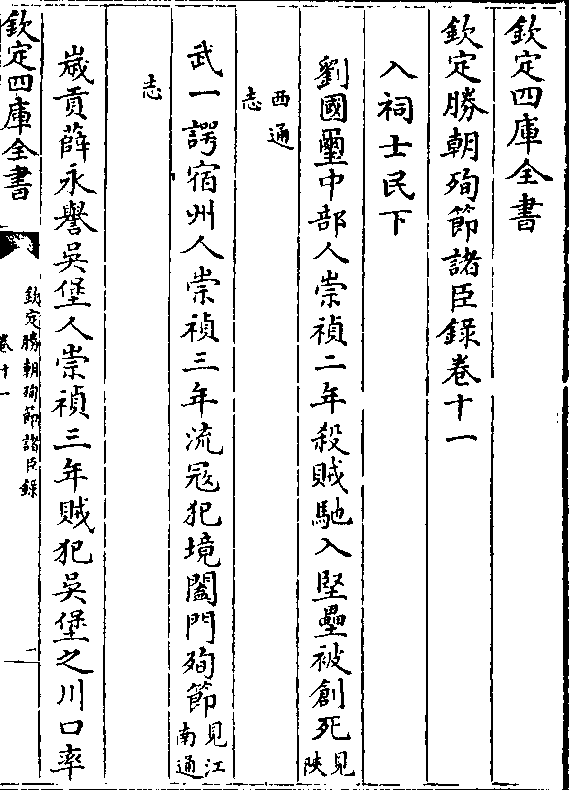 欽定四庫全書
欽定勝朝殉節諸臣錄卷十一
入祠士民下
劉國璽中部人崇禎二年殺賊馳入堅壘被創死見陜
西通志
武一諤宿州人崇禎三年流寇犯境闔門殉節見江南通
志
歲貢薛永譽吳堡人崇禎三年賊犯吳堡之川口率
欽定四庫全書
欽定勝朝殉節諸臣錄
卷十一
一